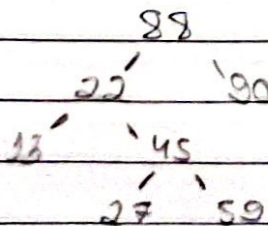 88
22 90
13 45
27 59